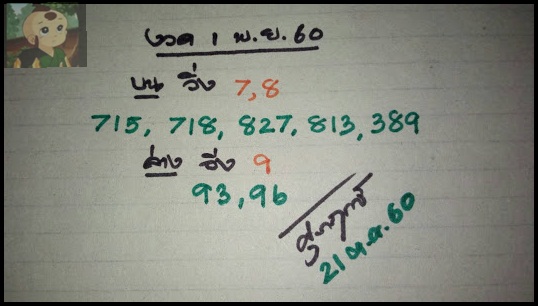 งวด 1 พ.ย.60
บน วิ่ง 7,8
715, 718, 827, 813, 389
ล่าง วิ่ง 9
93, 96
21 ต.ค. 60